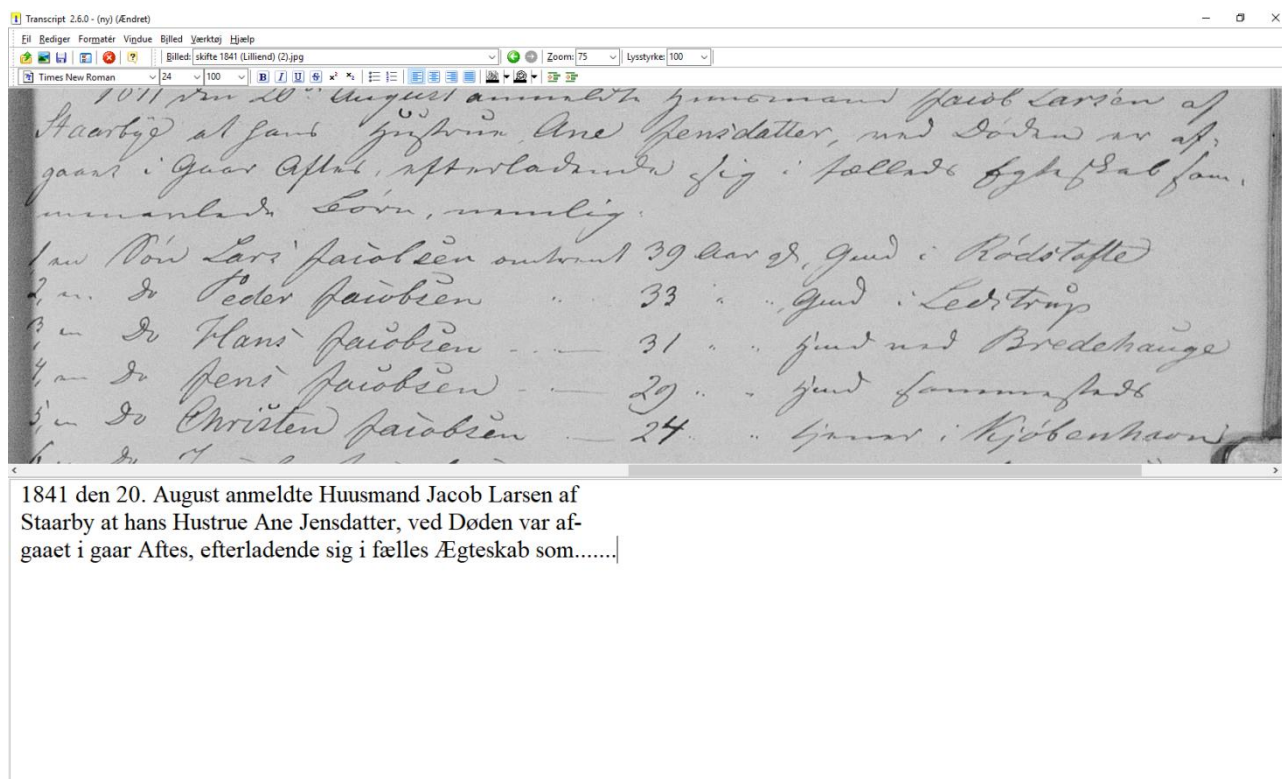 Transcript 2.6.0 - (ny) (Ændret)
Fil Rediger Formatér Vindue Billed Værktøj Hjælp
Billed: skifte 1841 (Lilliend) (2).jpg Zoom: 75 Lysstyrke: 100
Times New Roman 24 100 B I U S x² x₂
den 20. August anmeldte Huusmand Jacob Larsen af
Staarbye at hans Hustrue Ane Jensdatter, ved Døden er af-
gaaet i Gaar Aftes, efterladende sig i fælleds Egteskab sam-
menavlede Børn, nemlig:
1, en Søn Lars Jacobsen omtrent 39 Aar gl, Gmd i Rödstofte
2, en Do Peder Jacobsen " 33 " " Gmd i Ledstrup
3, en Do Hans Jacobsen 31 " " Hmd ved Bredehauge
4, en Do Jens Jacobsen 29 " " Hmd sammesteds
5, en Do Christen Jacobsen 24 " tjener i Kjöbenhavn
6 en Do
1841 den 20. August anmeldte Huusmand Jacob Larsen af
Staarby at hans Hustrue Ane Jensdatter, ved Døden var af-
gaaet i gaar Aftes, efterladende sig i fælles Ægteskab som.......